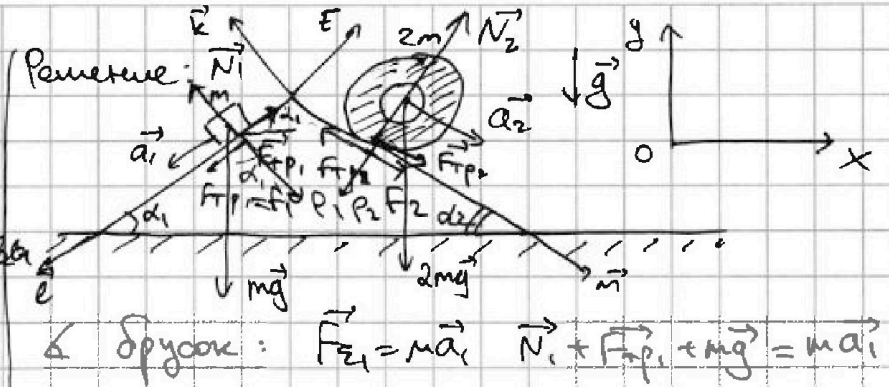 Решение:
k⃗ E 2m N⃗₂ y g⃗
N⃗₁ m
a⃗₁ a⃗₂ O x
F⃗тр₁ Fтр₂ F⃗тр₂
Fтр₁ = f₁ P₁ P₂ F₂
α₁ α₂
e mg⃗ 2mg⃗ m⃗
∡ брусок: F⃗Σ₁ = ma⃗₁ N⃗₁ + F⃗тр₁ + mg⃗ = ma⃗₁